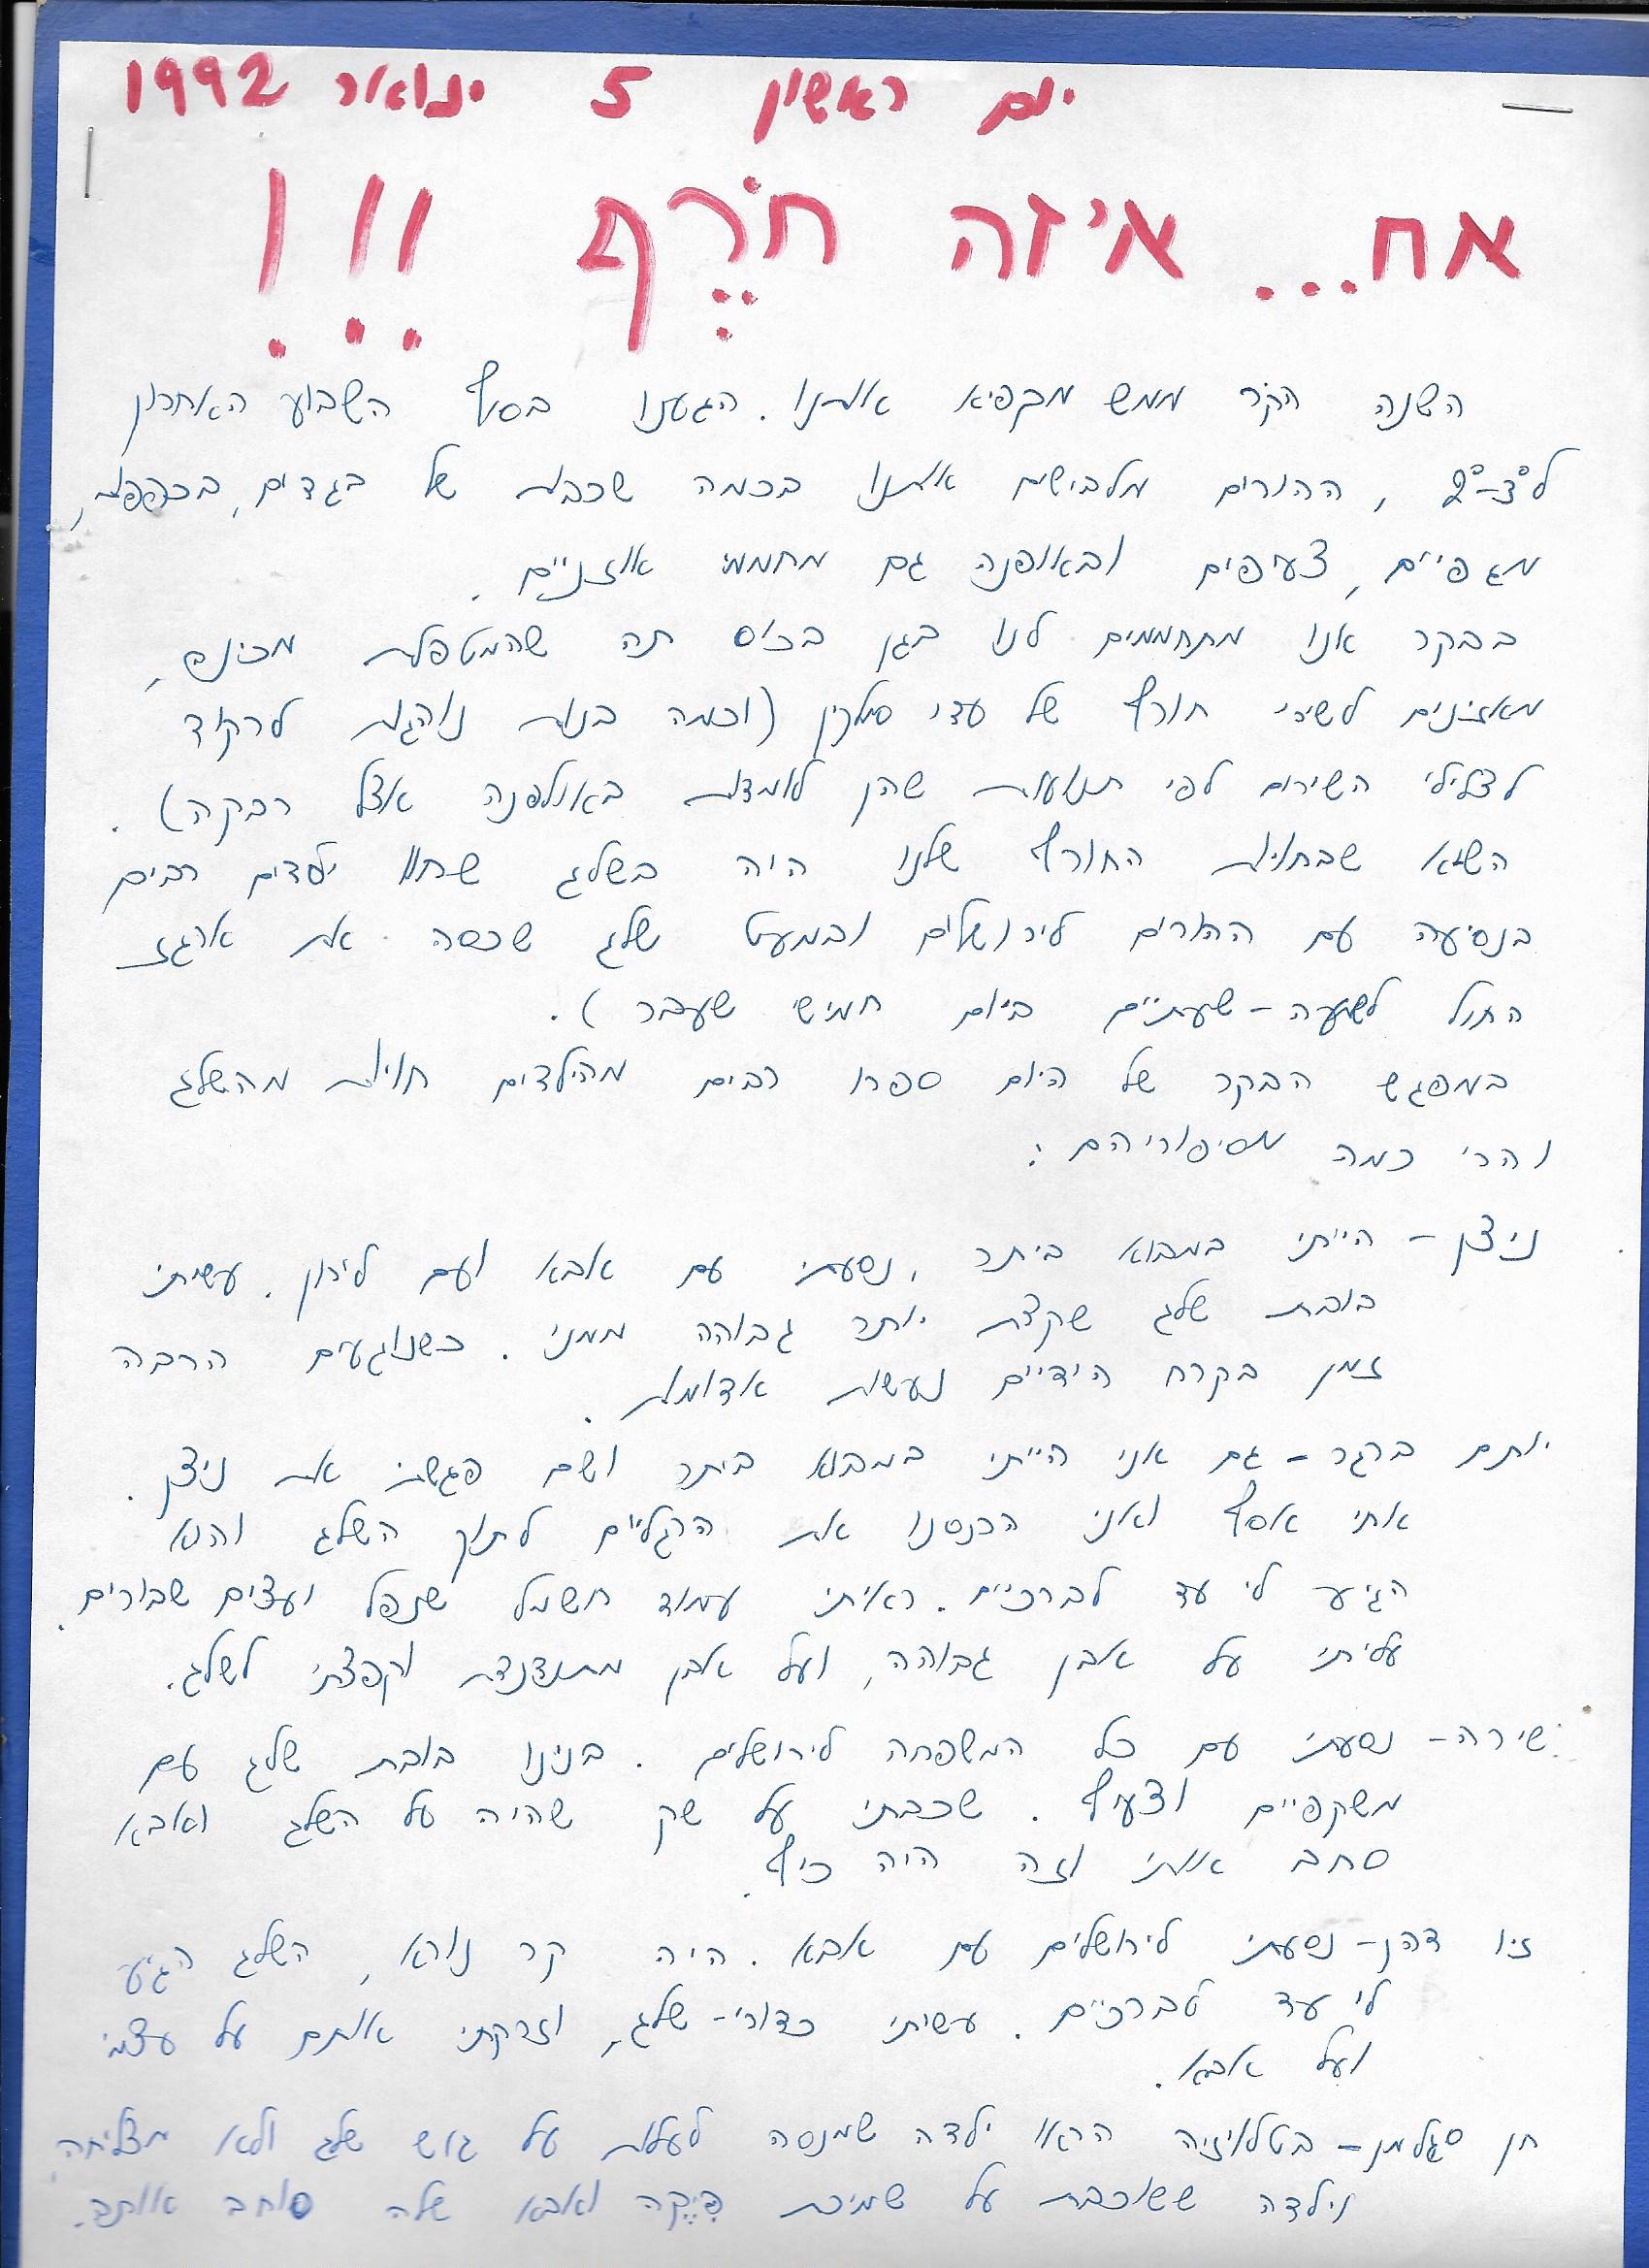 יום ראשון 5 ינואר 1992
אח... איזה חֹרֶף !!!
השנה הקר ממש מקפיא אותנו. הגענו בסוף השבוע האחרון
ל3°-2°, ההורים מלבישים אותנו בכמה שכבות של בגדים, בכפפות,
מגפיים, צעיפים ובאופנה גם מחממי אוזניים.
בבקר אנו מתחממים לנו בגן בכוס תה שהמטפלת מכינה,
מאזינים לשירי חורף של עדי (וכמה בנות נוהגות לרקוד
לצלילי השירים לפי תנועות שהן לומדות באולפנה אצל רבקה).
השיא שבחוית החורף שלנו היה בשלג שחוו ילדים רבים
בנסיעה עם ההורים לירושלים ובמעט שלג שכסה את ארגז
החול לשעה-שעתיים ביום חמישי שעבר).
במפגש הבקר של היום ספרו רבים מהילדים חויות מהשלג
והרי כמה מסיפוריהם:
ניצן - הייתי במבוא ביתר, נסעתי עם אבא ועם לירון. עשיתי
בובת שלג שקצת יותר גבוהה ממני. כשנוגעים הרבה
זמן בקרח הידיים נעשות אדומות.
יותם ברגר - גם אני הייתי במבוא ביתר ושם פגשתי את ניצן.
אחי אסף ואני הכנסנו את הרגליים לתוך השלג והוא
הגיע לי עד לברכיים. ראיתי עמוד חשמל שנפל ועצים שבורים.
עליתי על אבן גבוהה, ועל אבן מתנדנדת וקפצתי לשלג.
שירה - נסעתי עם כל המשפחה לירושלים. בנינו בובת שלג עם
משקפיים וצעיף. שכבתי על שק שהיה על השלג ואבא
סחב אותי וזה היה כיף.
זיו דהן - נסעתי לירושלים עם אבא. היה קר נורא, השלג הגיע
לי עד לברכיים. עשיתי כדורי-שלג, וזרקתי אותם על עצמי
ועל אבא.
חן סגלמן - בטלויזיה הראו ילדה שמנסה לעלות על גוש שלג ולא מצליחה
וילדה ששוכבת על שמיכת פִּיקֶה ואבא שלה סוחב אותה.